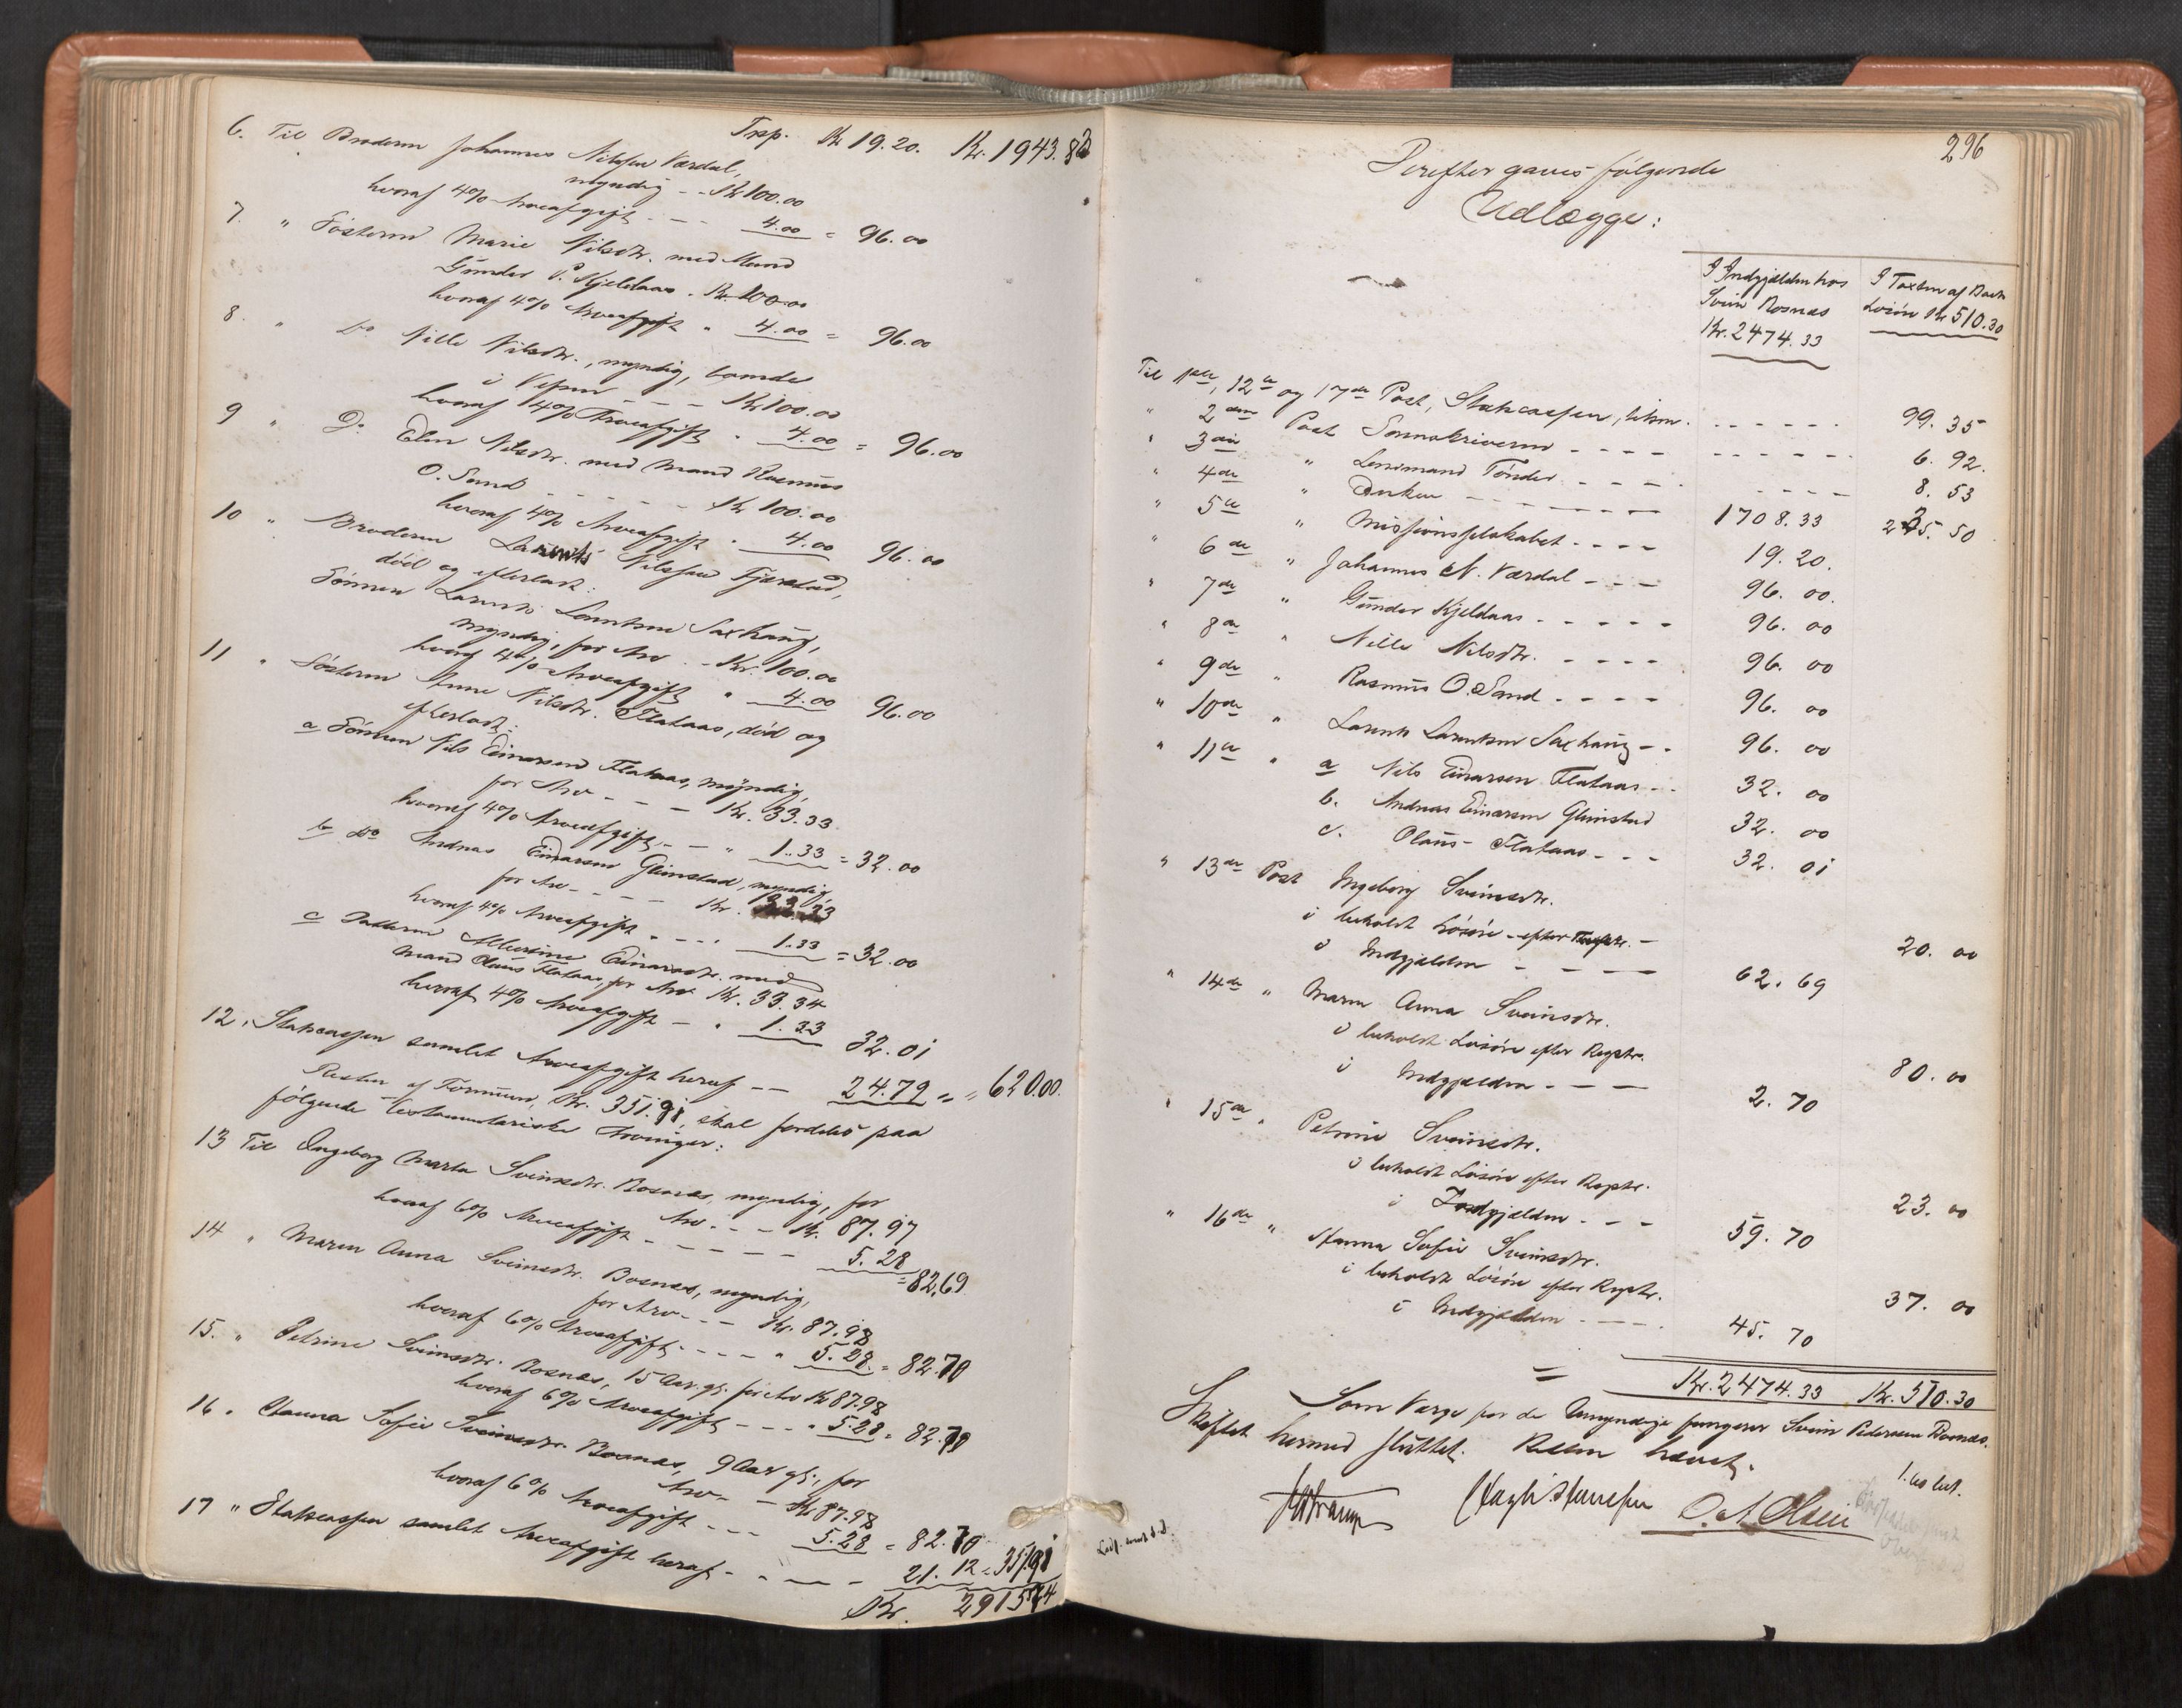 Trsp. Kr 19.20. Kr. 1943.83
6. Til Broderen Johannes Nilssen Værdal,
myndig - - Kr 100.00
hvoraf 4% Arveafgift - - - 4.00 = 96.00
7. " Søsteren Marie Nilsdtr. med Mand
Gunder P. Kjeldaas . Kr. 100.00
hvoraf 4% Arveafgift " 4.00 = 96.00
8. " Do Nille Nilsdtr., myndig, boende
i Vefsen - - - Kr 100.00
hvoraf 4% Arveafgift " 4.00 = 96.00
9 " Do Elen Nilsdtr. med Mand Rasmus
O. Sand - - - - - Kr 100.00
hvoraf 4% Arveafgift " 4.00 96.00
10 " Broderen Larents Nilssen Fjerstad,
død og efterladt:
Sønnen Larents Larentsen Saxhaug,
myndig, for Arv - - Kr. 100.00
hvoraf 4% Arveafgift " 4.00 96.00
11 " Søsteren Anne Nilsdtr. Flataas, død og
efterladt:
a Sønnen Nils Einarsen Flataas, myndig,
for Arv - - - Kr. 33.33
hvoraf 4% Arveafgift - - " 1.33 = 32.00
b Do Andreas Einarsen Glimstad, myndig,
for Arv - - - Kr. 33.33
hvoraf 4% Arveafgift . - - - 1.33 = 32.00
c Datteren Albertine Einarsdtr. med
Mand Olaus Flataas, for Arv Kr. 33.34
hvoraf 4% Arveafgift - " 1.33 32.01
12. Statscassen samlet Arveafgift heraf - - 24.79 = 620.00.
Resten af Formuen, Kr. 351.91, skal fordeles paa
følgende testamentariske Arvinger:
13 Til Ingeborg Marta Sveinsdtr. Bosnæs, myndig, for
Arv - - - Kr. 87.97
hvoraf 6% Arveafgift - - - - - 5.28 = 82.69
14 " Maren Anna Sveinsdtr. Bosnæs, myndig,
for Arv - - - Kr. 87.98
hvoraf 6% Arveafgift - - - - " 5.28 = 82.70
15. " Petrine Sveinsdtr. Bosnæs, 15 Aar gl. for Arv Kr 87.98
hvoraf 6% Arveafgift - - - " 5.28 = 82.70
16 " Hanna Sofie Sveinsdtr. Bosnæs, 9 Aar gl., for
Arv - - Kr 87.98
hvoraf 6% Arveafgift - - - 5.28 = 82.70
17 " Statscassen samlet Arveafgift heraf - - - - 21.12 = 351.91
Kr. 2915.74
296
Derefter gaves følgende
Udlægge:
I Indgjælden hos
Svein Bosnæs
Kr. 2474.33
I Taxten af Boets
Løsøre Kr 510.30
Til 1ste, 12te og 17de Post, Statscassen, tilsm. - - - - - - 99.35
" 2den Post Sorenskriveren - - - - - - - - - - 6.92.
" 3die " Lensmand Tønder - - - - - - - - 8.53
" 4de " Enken - - - - - - 1708.33 235.50
" 5te " Missionsselskabet - - - - 19.20.
" 6de " Johannes N. Værdal - - - 96.00.
" 7de " Gunder Kjeldaas - - - - - 96.00
" 8de " Nille Nilsdtr. - - - - 96.00
" 9de " Rasmus O. Sand - - - - 96.00
" 10de " Larents Larentsen Saxhaug - - 96.00
" 11te " a Nils Einarsen Flataas - - 32.00
b. Andreas Einarsen Glimstad 32.00
c. Olaus Flataas - - - 32.01
" 13de Post Ingeborg Sveinsdtr.
i beholdt Løsøre efter Registr. - 20.00
i Indgjælden - - - - 62.69
" 14de " Maren Anna Sveinsdtr.
i beholdt Løsøre efter Registr. 80.00
i Indgjælden - - - 2.70
" 15de " Petrine Sveinsdtr.
i beholdt Løsøre efter Registr. 23.00
i Indgjælden - - - 59.70
" 16de " Hanna Sofie Sveinsdtr.
i beholdt Løsøre efter Registr. 37.00
i Indgjælden - - - . 45.70
= Kr. 2474.33 Kr. 510.30
Som Værge for de Umyndige fungerer Svein Pedersen Bosnæs.
Skiftet hermed sluttet. Retten hævet.
O. A. Olsen